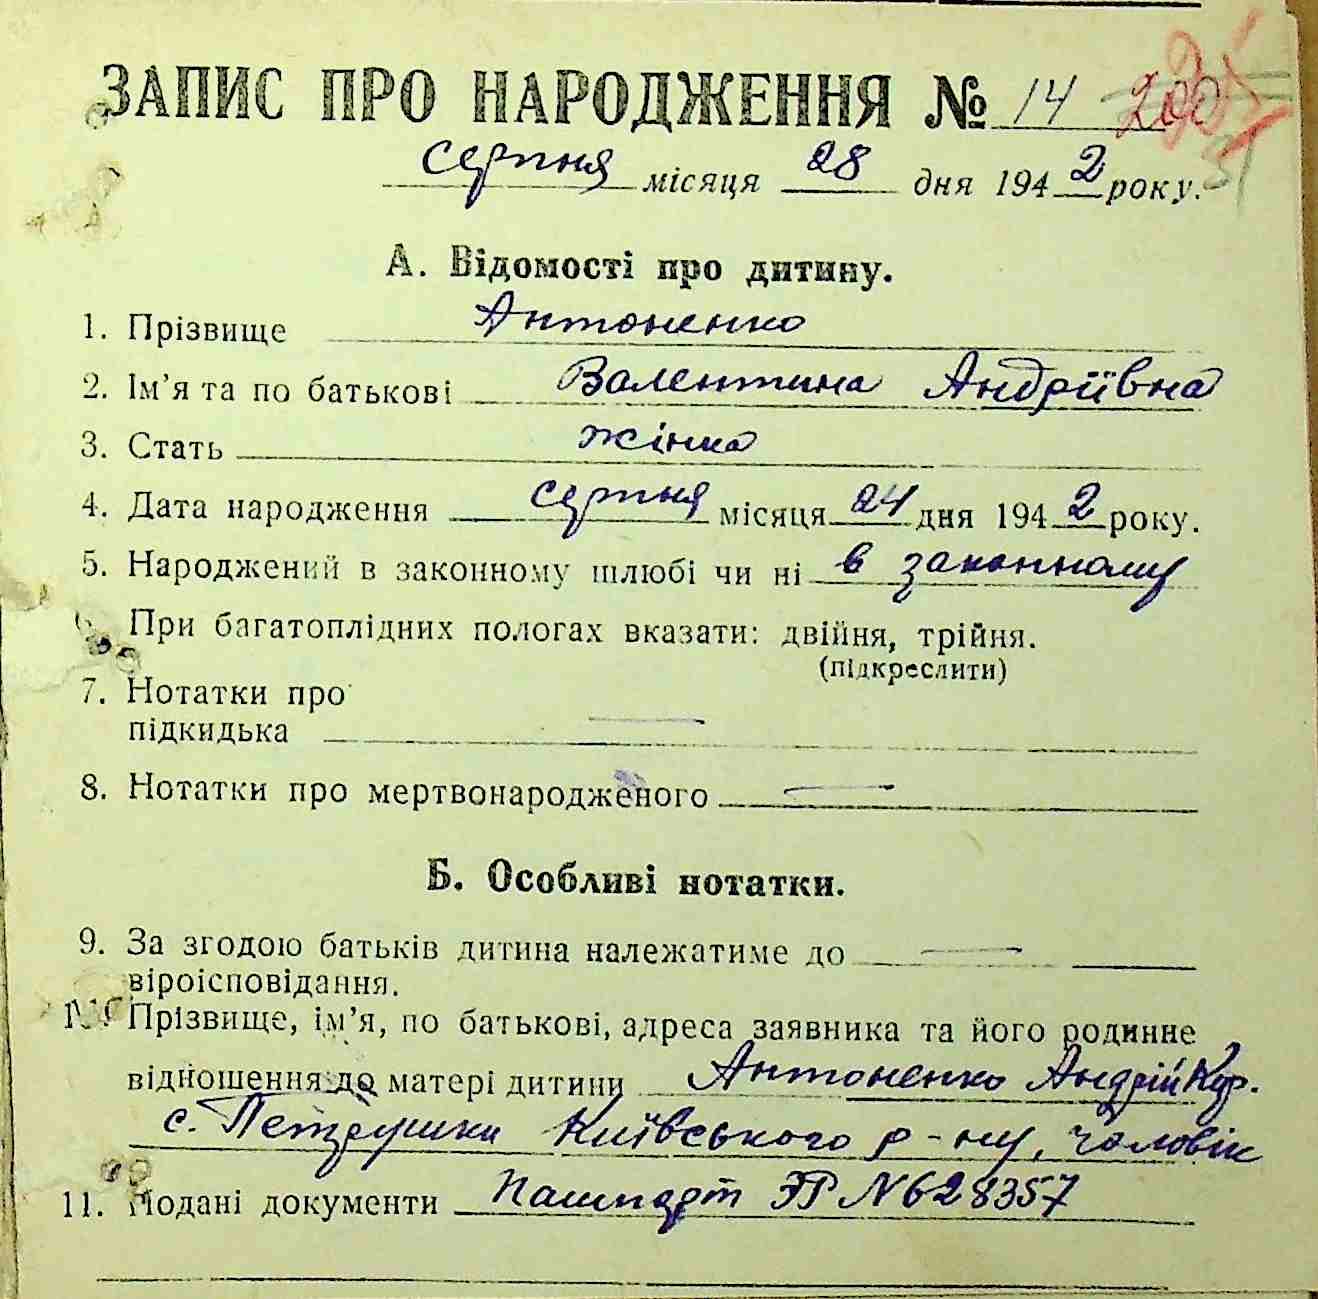 ЗАПИС ПРО НАРОДЖЕННЯ № 14
серпня місяця 28 дня 1942 року.
А. Відомості про дитину.
1. Прізвище Антоненко
2. Ім'я та по батькові Валентина Андріївна
3. Стать жінка
4. Дата народження серпня місяця 24 дня 1942 року.
5. Народжений в законному шлюбі чи ні в законному
При багатоплідних пологах вказати: двійня, трійня.
(підкреслити)
7. Нотатки про
підкидька
8. Нотатки про мертвонародженого
Б. Особливі нотатки.
9. За згодою батьків дитина належатиме до
віроісповідання.
Прізвище, ім'я, по батькові, адреса заявника та його родинне
відношення до матері дитини Антоненко Андрій Кир.
с. Петрушки Київського р-ну, чоловік
11. Подані документи Пашпорт ЭР № 628357